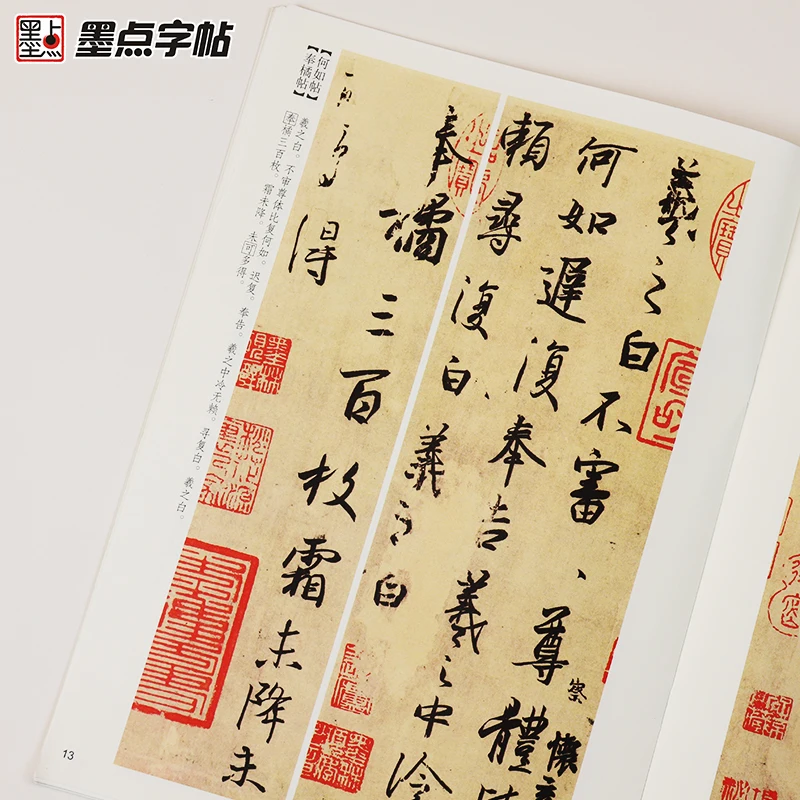 墨点字帖
【何如帖】
【奉橘帖】
羲之白。不审尊体比复何如。迟复。奉告。羲之中冷无赖。寻复白。羲之白。
奉橘三百枚。霜未降。未可多得。
羲之白不審、尊體
察
懷
何如遲復奉告羲之中冷
賴尋復白羲之白
奉橘三百枚霜未降未
得
13